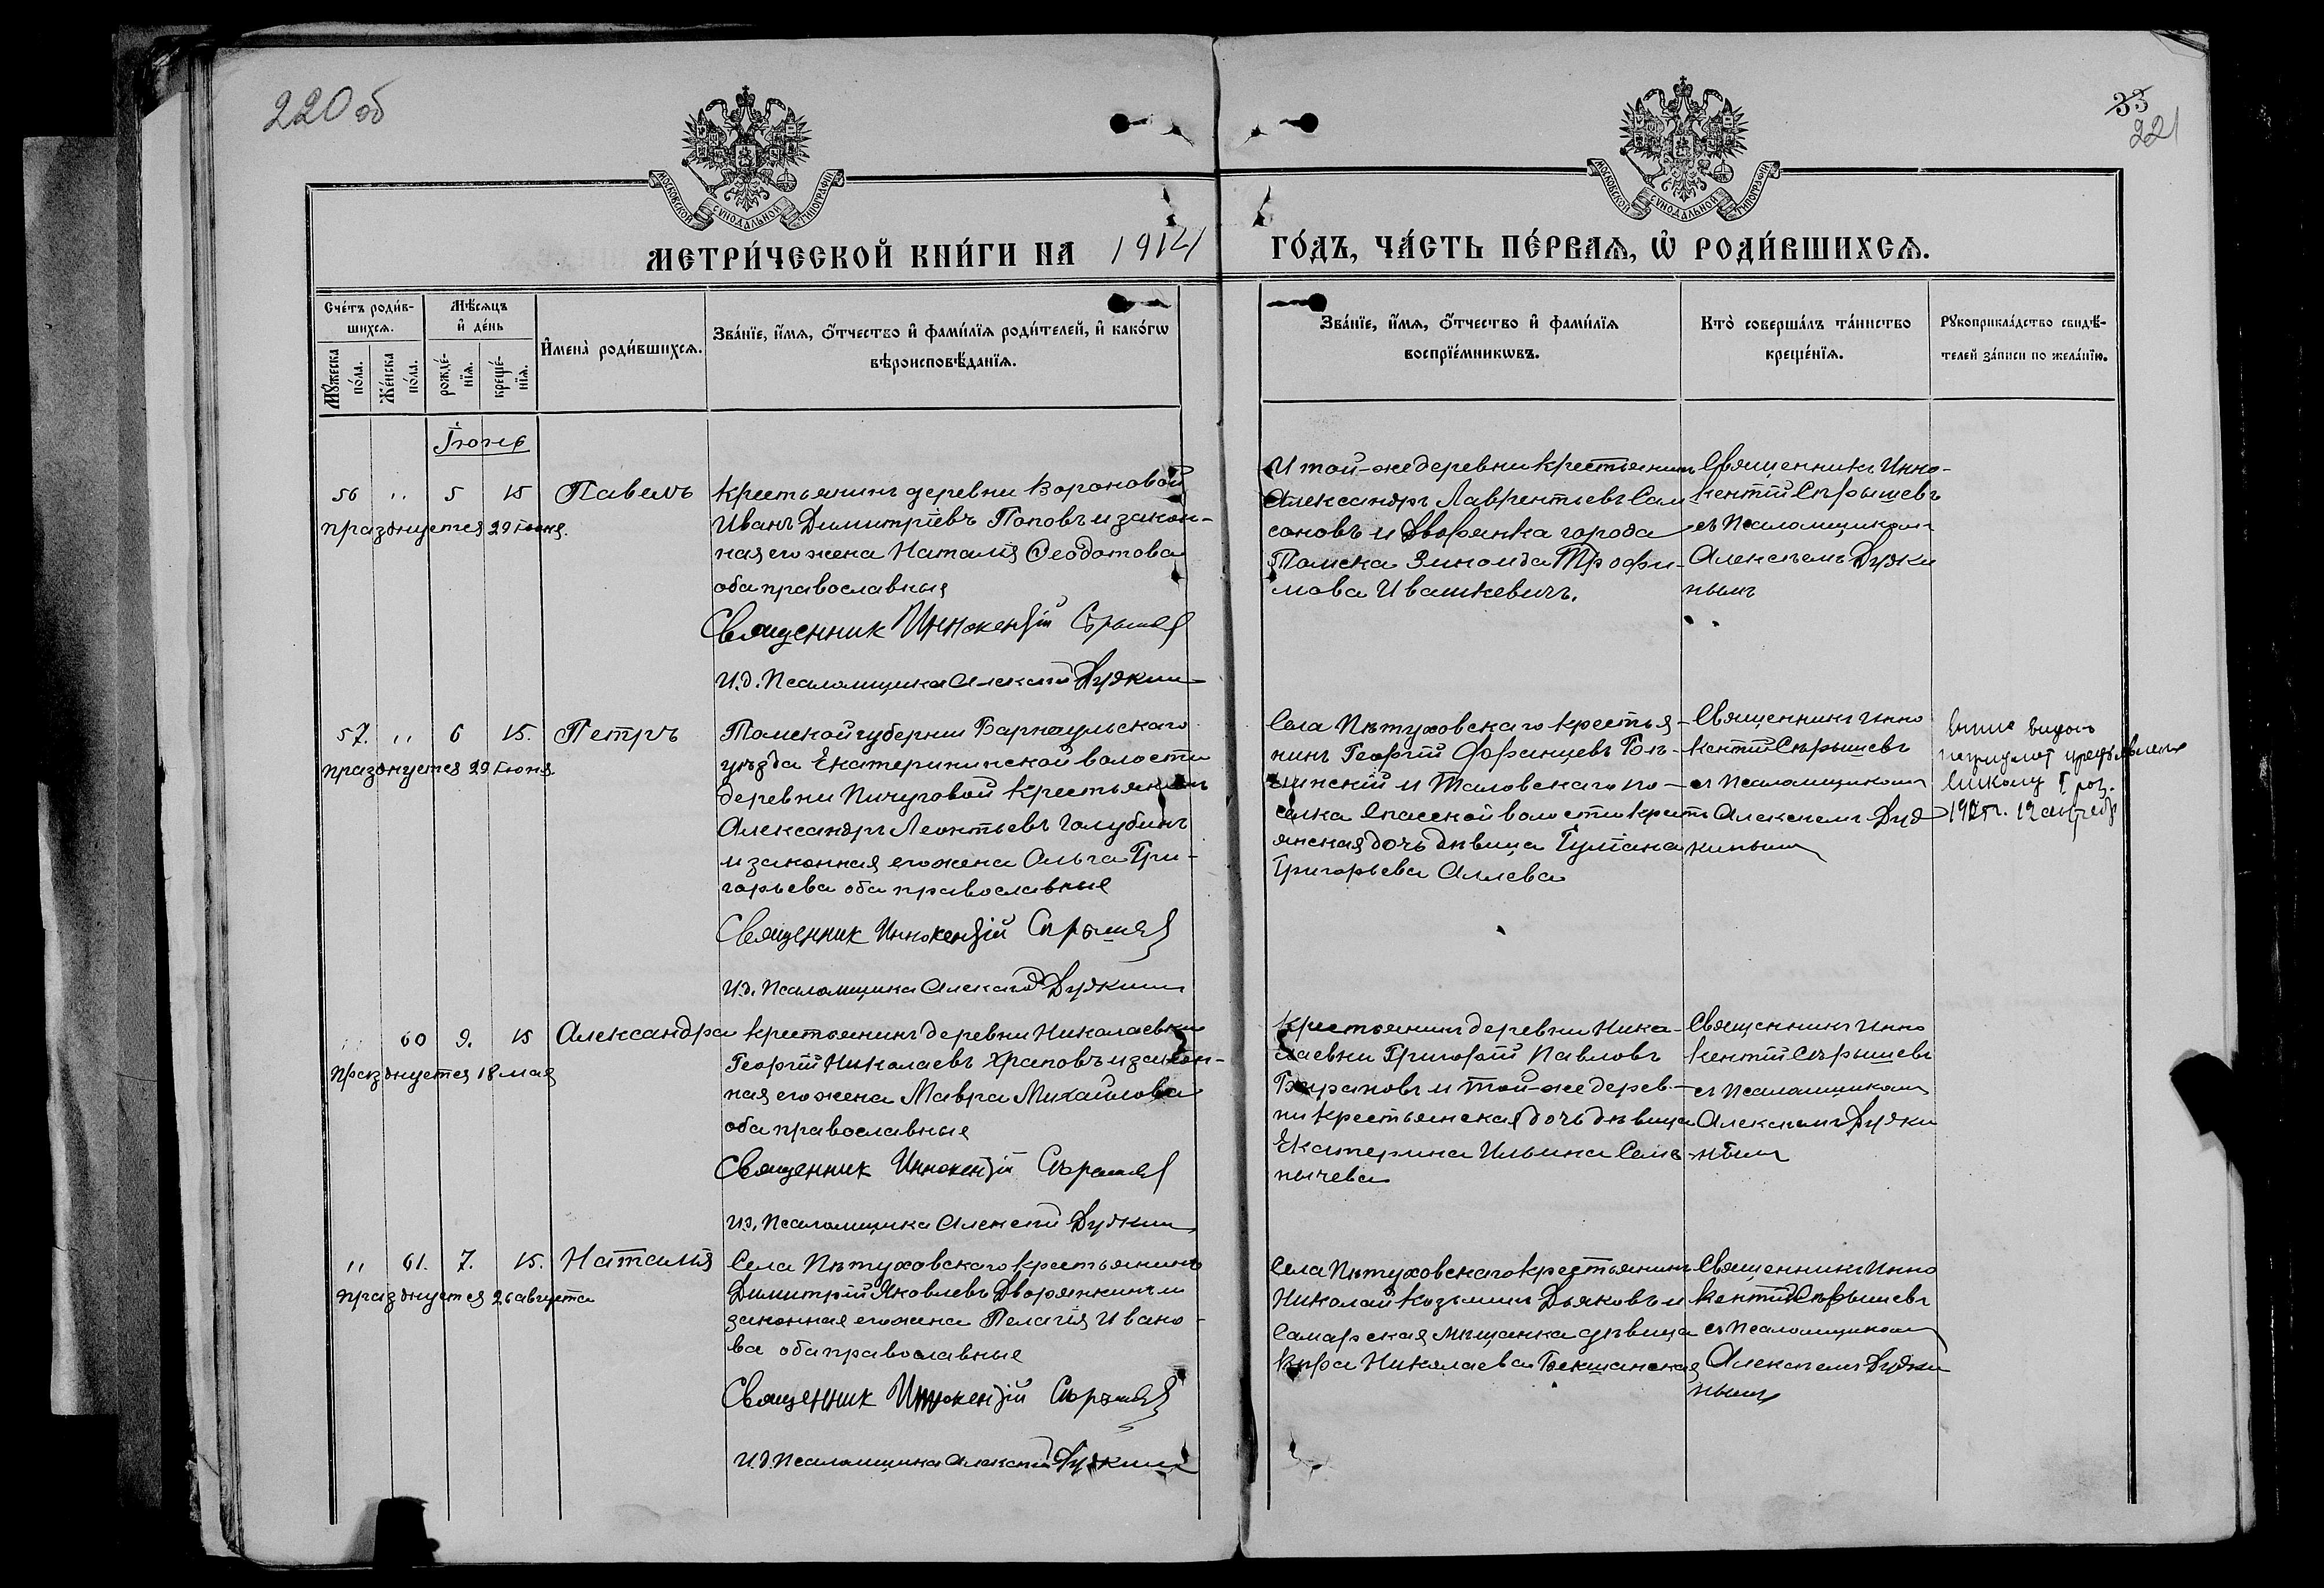 220 об
33
221
МОСКОВСКОЙ СѴНОДАЛЬНОЙ ТИПОГРАФІИ
МОСКОВСКОЙ СѴНОДАЛЬНОЙ ТИПОГРАФІИ
МЕТРИ́ЧЕСКОЙ КНИ́ГИ НА 1914
ГО́ДЪ, ЧА́СТЬ ПЕ́РВАѦ, Ѡ РОДИ́ВШИХСѦ.
Сче́тъ роди́в-
шихсѧ.
Мꙋ́жеска
по́ла.
Же́нска
по́ла.
Мѣ́сѧцъ
и҆ де́нь
рожде́-
нїѧ.
креще́-
нїѧ.
И҆мена̀ роди́вшихсѧ.
Зва́нїе, и҆́мѧ, ѻ҆́тчество и҆ фами́лїѧ роди́телей, и҆ како́гѡ
вѣроисповѣ́данїѧ.
Зва́нїе, и҆́мѧ, ѻ҆́тчество и҆ фами́лїѧ
воспрїе́мникѡвъ.
Кто̀ соверша́лъ та́инство
креще́нїѧ.
Рꙋкоприкла́дство свидѣ́-
телей за́писи по жела́нїю.
Іюнь
56 " 5 15 Павелъ
празднуется 29 Іюня.
крестьянинъ деревни Вороновой
Иванъ Димитріевъ Поповъ и закон-
ная его жена Наталія Ѳеодотова
оба православныя
Священник Иннокентій Сѣрышев
И.д. Псаломщика Алексѣй Дудкин
И той-же деревни крестьянинъ
Александръ Лаврентьевъ Сам
соновъ и Дворянка города
Томска Зинаида Трофи-
мова Ивашкевичъ.
Священникъ Инно-
кентій Сѣрышевъ
съ Псаломщикомъ
Алексѣемъ Дудки
нымъ
57. " 6 15. Петръ
празднуется 29 Іюня
Томской губерніи Барнаульскаго
уѣзда Екатерининской волости
деревни Пичуговой крестьянинъ
Александръ Леонтьевъ Голубинъ
и законная его жена Ольга Гри-
горьева оба православные
Священник Иннокентій Сѣрышев
И.д. Псаломщика Алексѣй Дудкин
Села Пѣтуховскаго крестья-
нинъ Георгій Францевъ Бѣ-
линскій и Таловскаго по-
селка Спасской волости крест
янская дочь дѣвица Гуліана
Григорьева Алиева
Священникъ Инно
кентій Сѣрышевъ
съ Псаломщикомъ
Алексѣемъ Дуд
кинымъ
12
" 60 9. 15 Александра
празднуется 18 мая
крестьянинъ деревни Николаевки
Георгій Николаевъ Храповъ и закон-
ная его жена Мавра Михайлова
оба православные
Священник Иннокентій Сѣрышев
И.д. Псаломщика Алексѣй Дудкин
крестьянинъ деревни Нико-
лаевки Григорій Павловъ
Барановъ и той-же дерев-
ни крестьянская дочь дѣвица
Екатерина Ильина Селе
нычева
Священникъ Инно
кентій Сѣрышевъ
съ Псаломщикомъ
Алексѣемъ Дудки
нымъ
" 61. 7. 15. Наталія
празднуется 26 августа
Села Пѣтуховскаго крестьянинъ
Димитрій Яковлевъ Дворянкинъ и
законная его жена Пелагія Ивано-
ва оба православные
Священник Иннокентій Сѣрышев
И.д. Псаломщика Алексѣй Дудкин
Села Пѣтуховскаго крестьянинъ
Николай Козьминъ Дьяковъ и
Самарская мѣщанка дѣвица
Вѣра Николаева Бекшанская
Священникъ Инно
кентій Сѣрышевъ
съ Псаломщикомъ
Алексѣемъ Дудки
нымъ